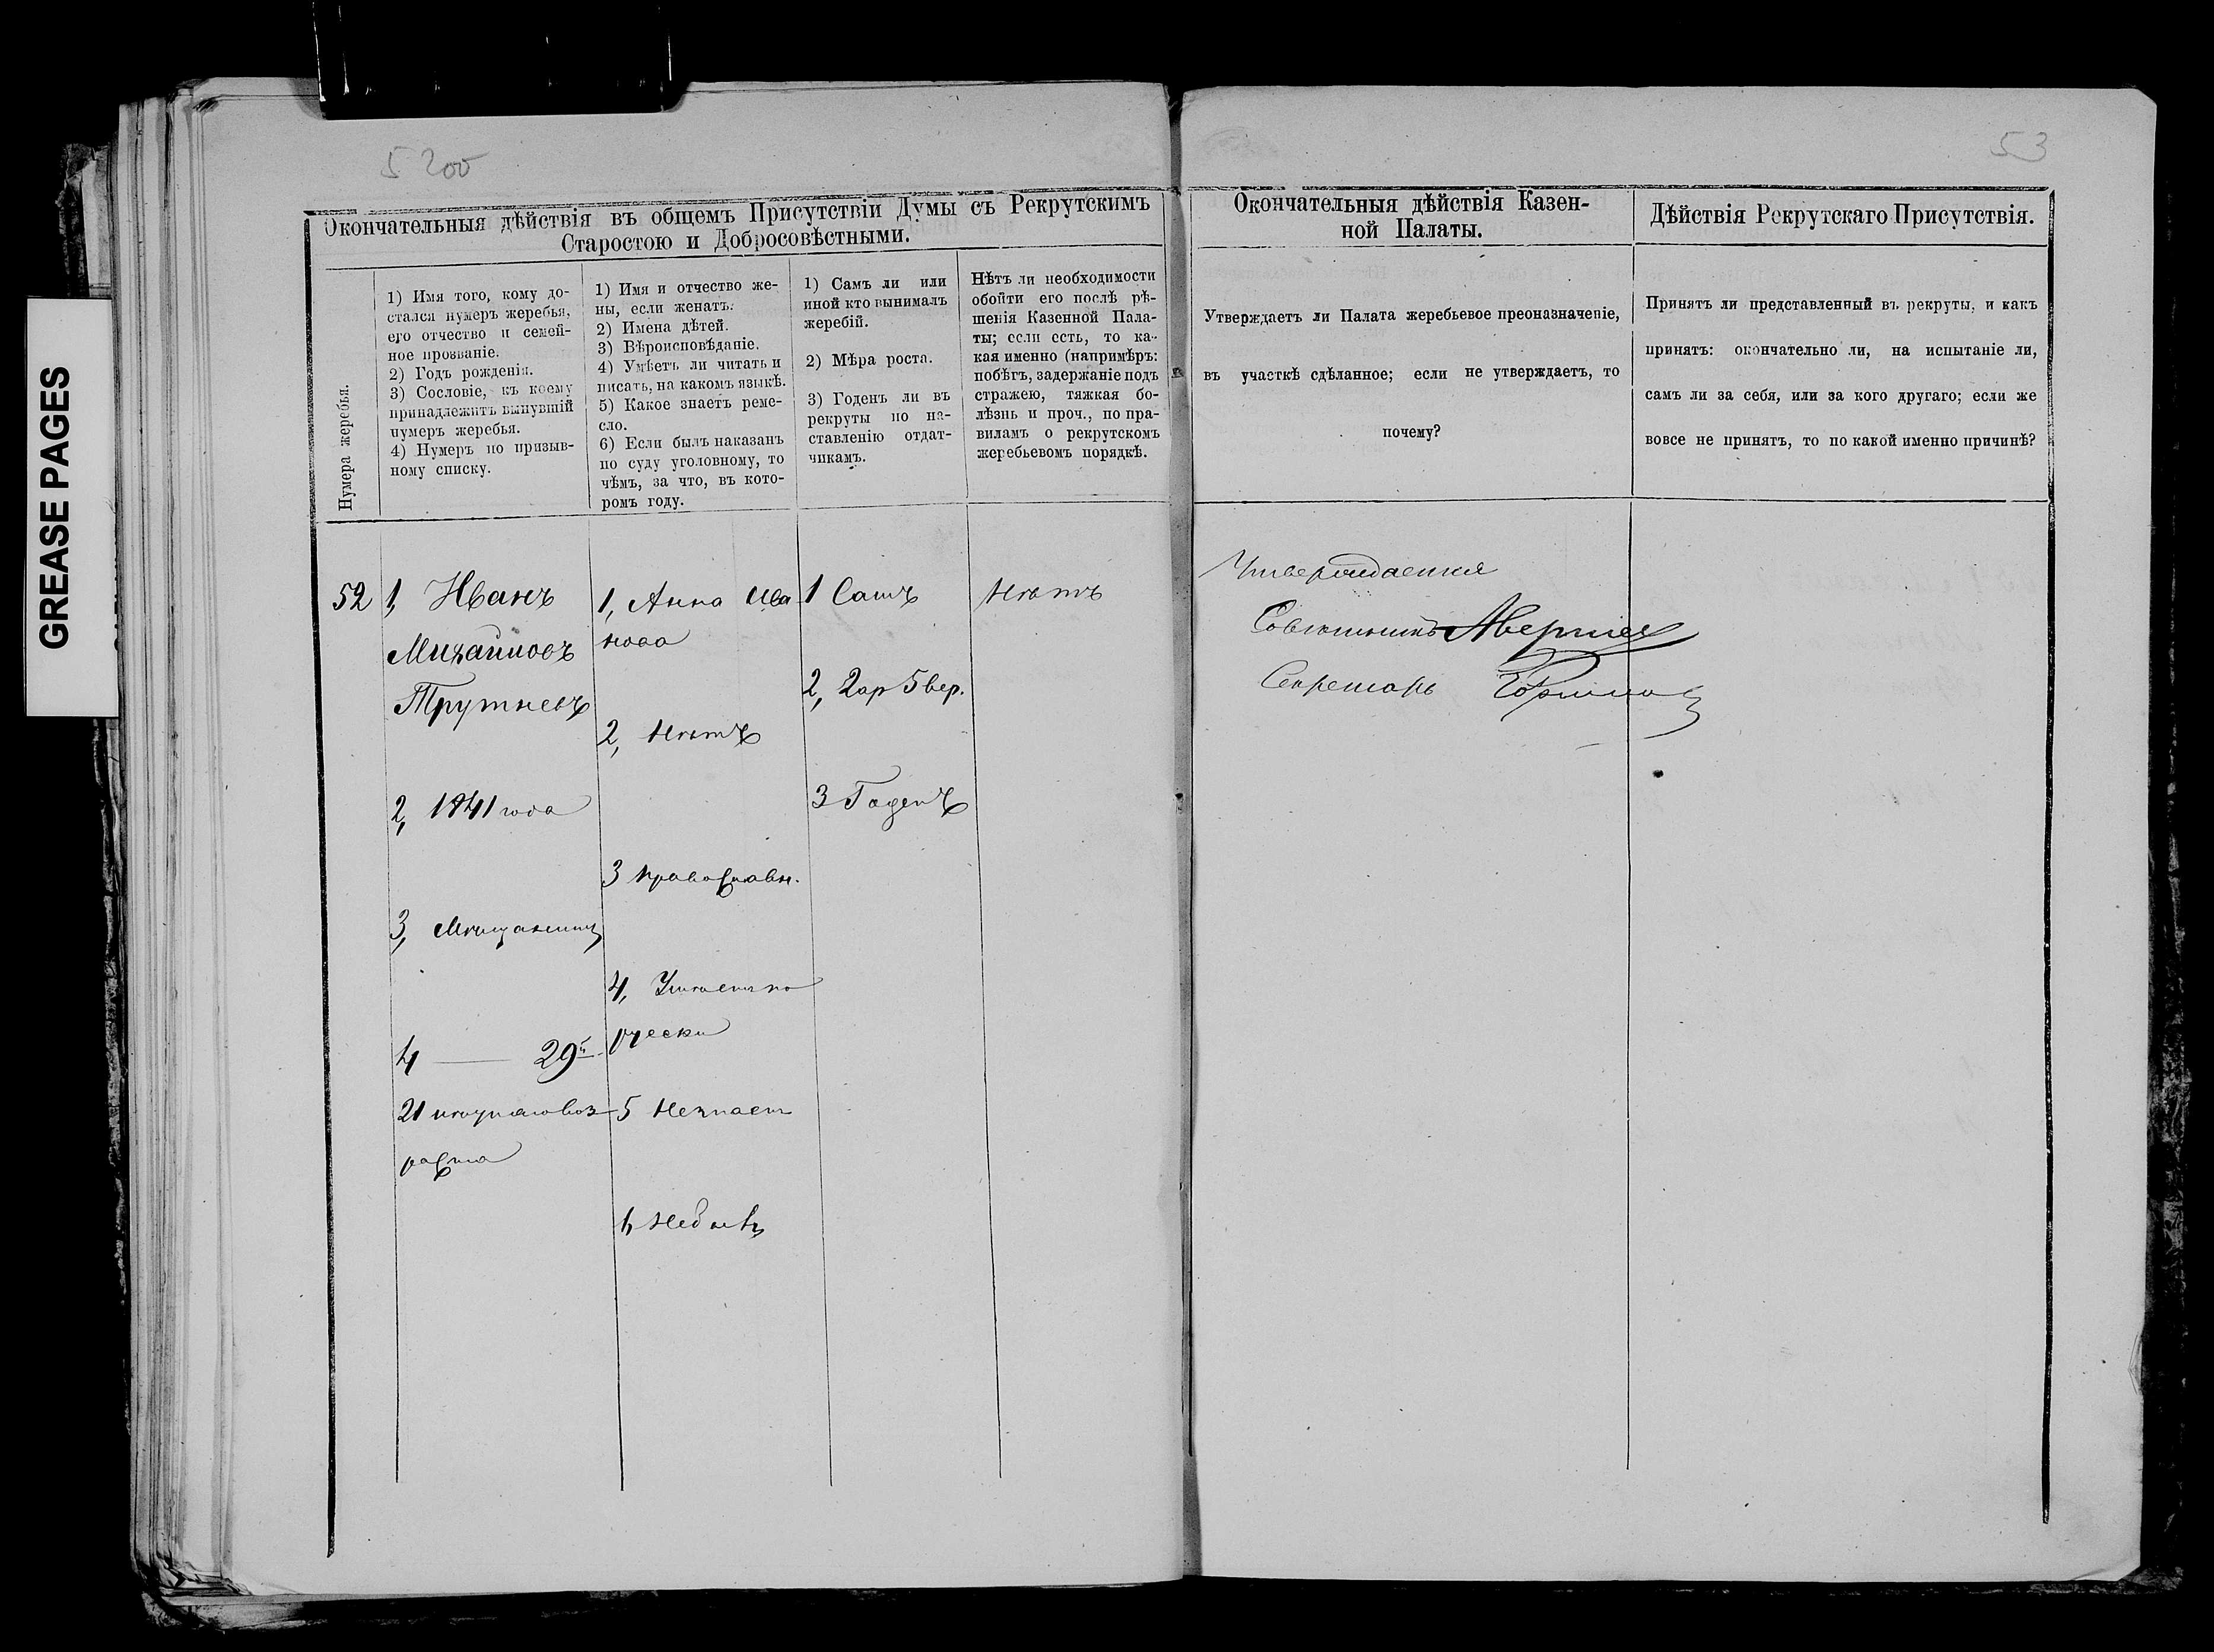 GREASE PAGES
5200
53
Окончательныя дѣйствія въ общемъ Присутствіи Думы съ Рекрутскимъ
Старостою и Добросовѣстными.
Нумера жеребья.
1) Имя того, кому до-
стался нумеръ жеребья,
его отчество и семей-
ное прозваніе.
2) Годъ рожденія.
3) Сословіе, къ коему
принадлежитъ вынувшій
нумеръ жеребья.
4) Нумеръ по призыв-
ному списку.
1) Имя и отчество же-
ны, если женатъ.
2) Имена дѣтей.
3) Вѣроисповѣданіе.
4) Умѣетъ ли читать и
писать, на какомъ языкѣ.
5) Какое знаетъ реме-
сло.
6) Если былъ наказанъ
по суду уголовному, то
чѣмъ, за что, въ кото-
ромъ году.
1) Самъ ли или
иной кто вынималъ
жеребій.
2) Мѣра роста.
3) Годенъ ли въ
рекруты по на-
ставленію отдат-
чикамъ.
Нѣтъ ли необходимости
обойти его послѣ рѣ-
шенія Казенной Пала-
ты; если есть, то ка-
кая именно (напримѣръ:
побѣгъ, задержаніе подъ
стражею, тяжкая бо-
лѣзнь и проч., по пра-
виламъ о рекрутскомъ
жеребьевомъ порядкѣ.
Окончательныя дѣйствія Казен-
ной Палаты.
Утверждаетъ ли Палата жеребьевое преоназначеніе,
въ участкѣ сдѣланное; если не утверждаетъ, то
почему?
Дѣйствія Рекрутскаго Присутствія.
Принятъ ли представленный въ рекруты, и какъ
принятъ: окончательно ли, на испытаніе ли,
самъ ли за себя, или за кого другаго; если же
вовсе не принятъ, то по какой именно причинѣ?
52
1, Иванъ
Михайловъ
Трутневъ
2, 1841 года
3, Мѣщанинъ
4 — 29й
21 лѣтняго воз-
раста
1, Анна Ива
нова
2, Нѣтъ
3 православн.
4, Умѣетъ по
русски
5 Незнает
6 Небылъ
1 Самъ
2, 2 ар 5 вер.
3 Годенъ
Нѣтъ
Утверждается
Совѣтникъ
Секретарь